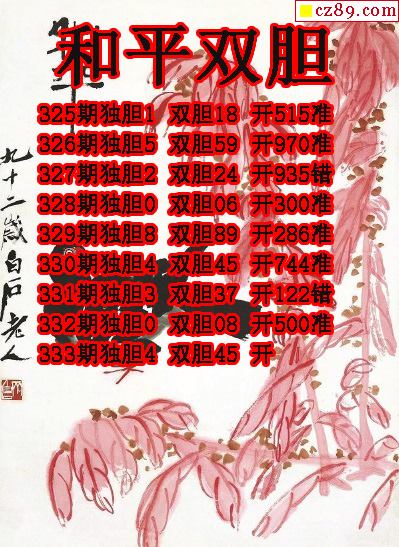 cz89.com
和平双胆
325期独胆1 双胆18 开515准
326期独胆5 双胆59 开970准
327期独胆2 双胆24 开935错
328期独胆0 双胆06 开300准
329期独胆8 双胆89 开286准
330期独胆4 双胆45 开744准
331期独胆3 双胆37 开122错
332期独胆0 双胆08 开500准
333期独胆4 双胆45 开
九十二岁白石老人